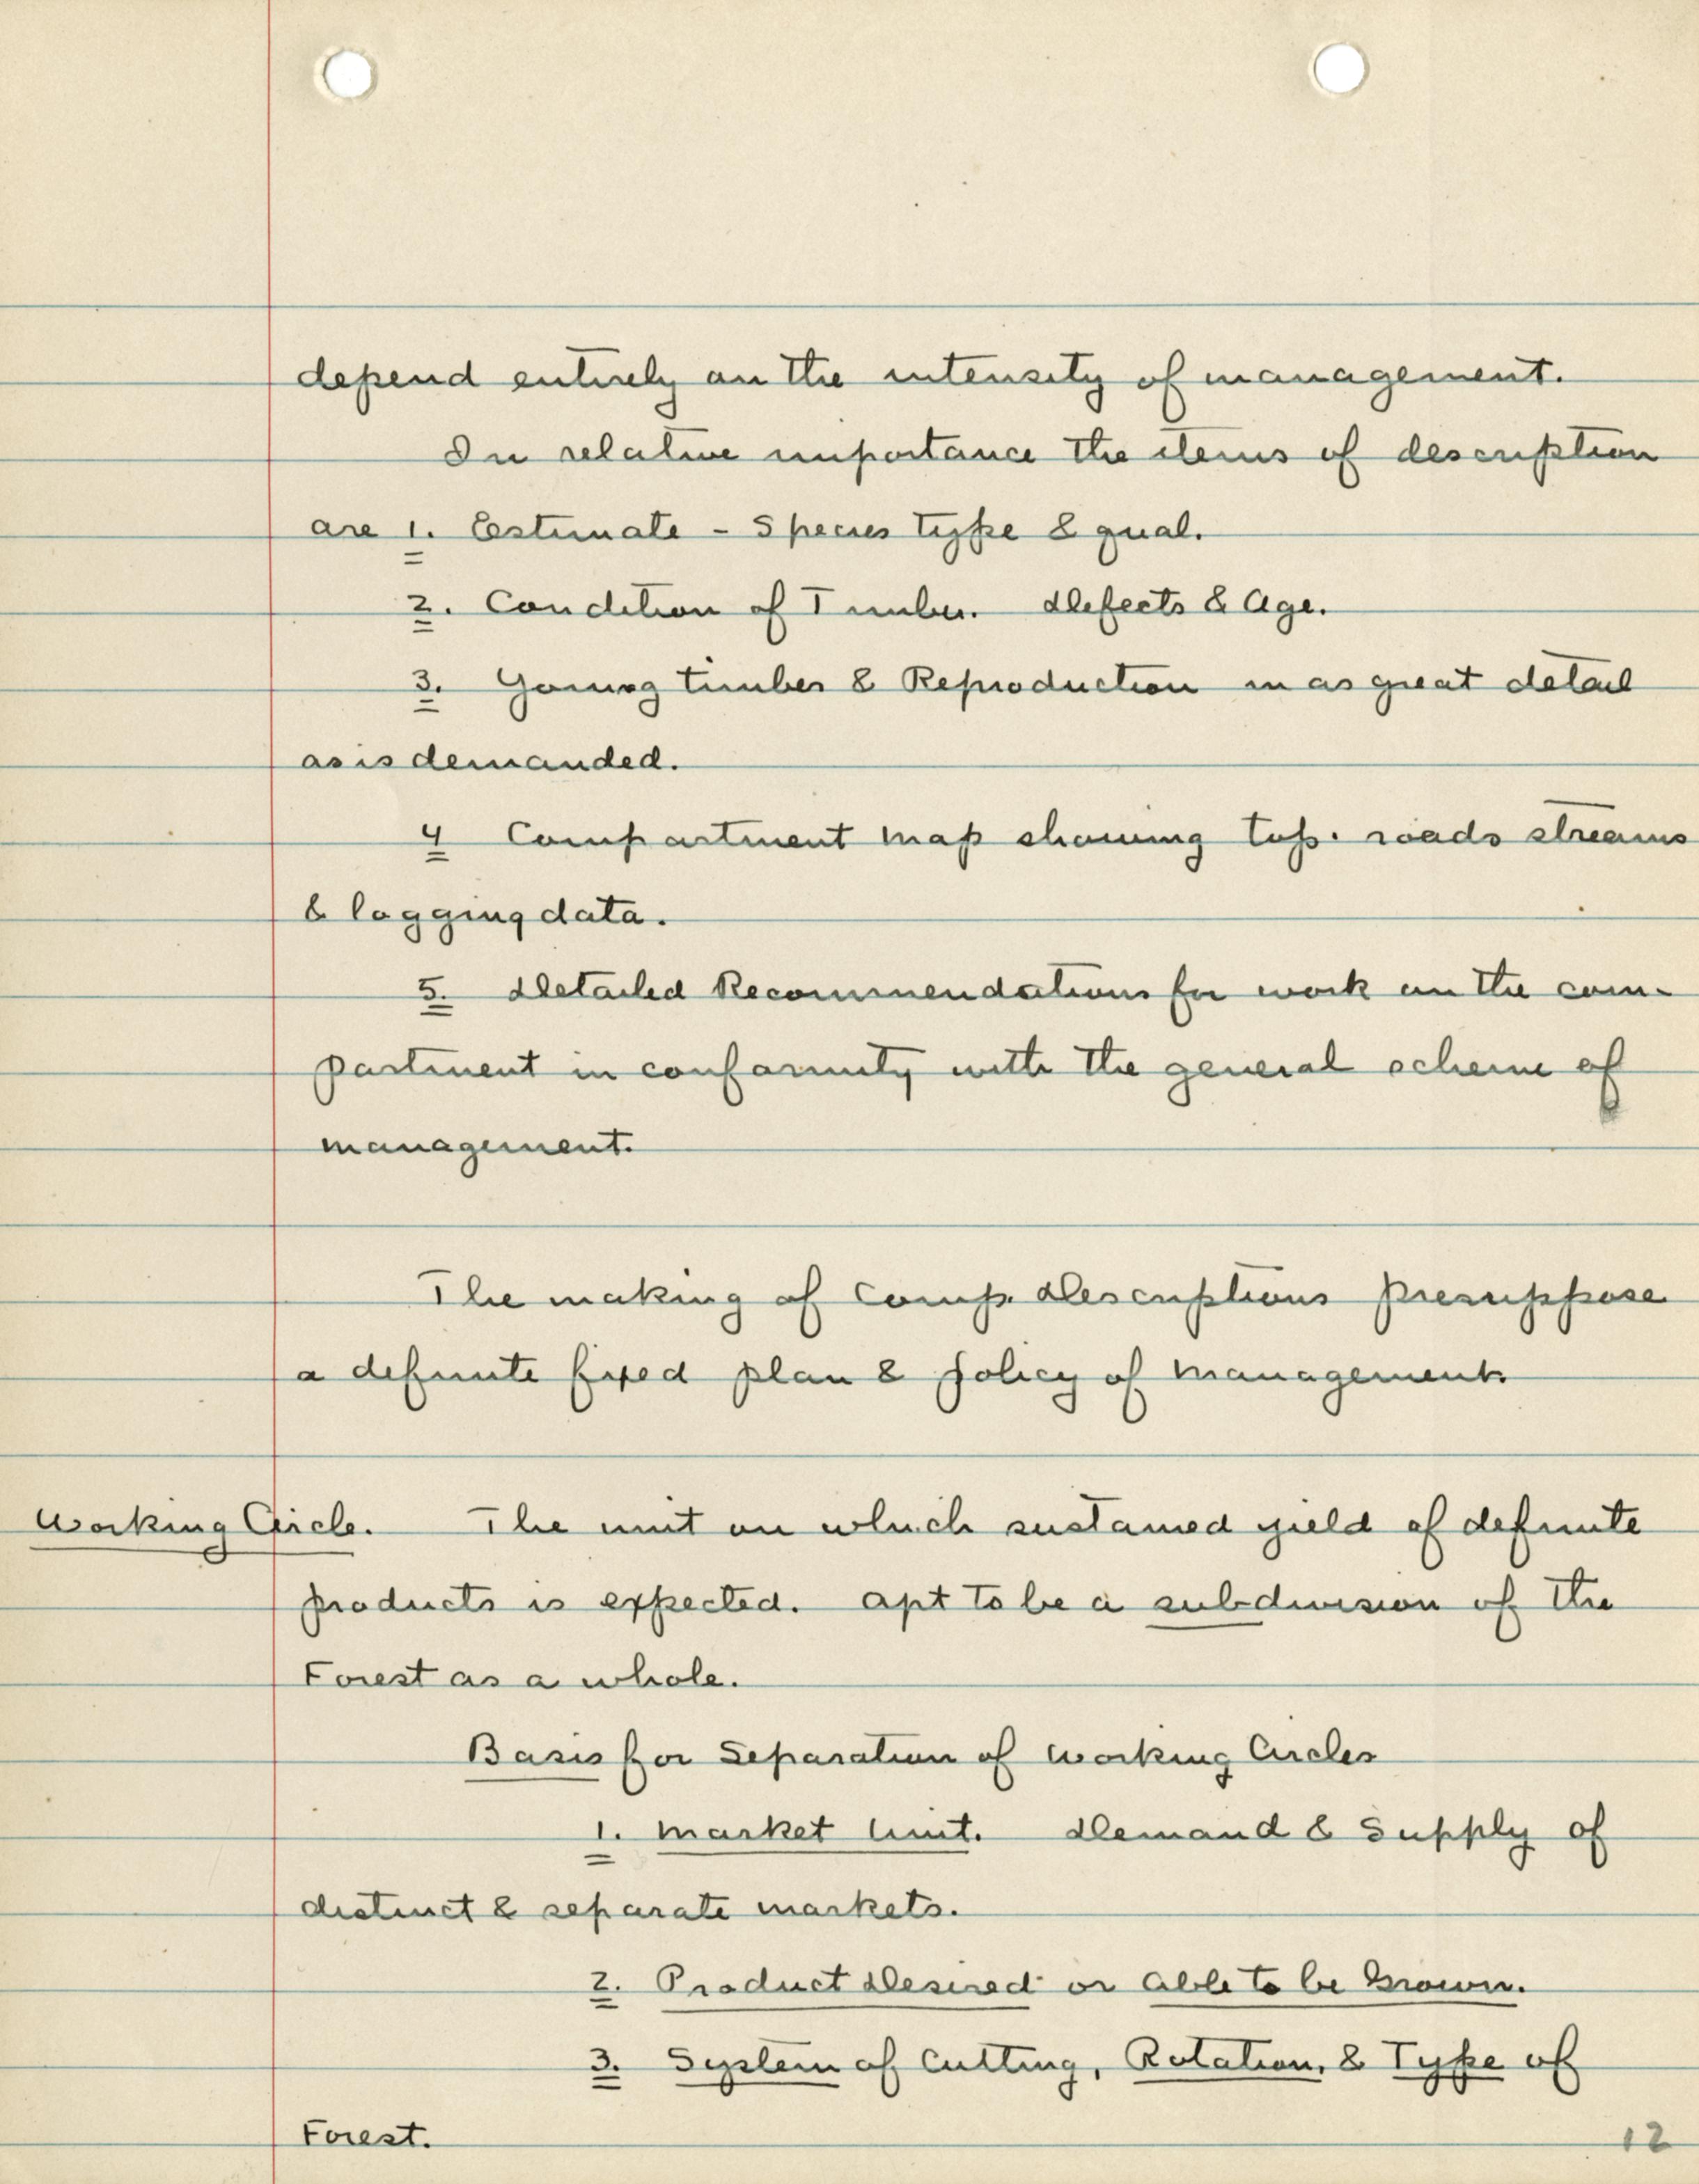 depend entirely on the intensity of management.
In relative importance the items of description
are 1. Estimate - Species type & qual.
2. Condition of Timber. Defects & Age.
3. Young timber & Reproduction in as great detail
as is demanded.
4 Compartment map showing top. roads streams
& logging data.
5. Detailed Recommendations for work on the com-
partment in conformity with the general scheme of
management.
The making of Comp. Descriptions presuppose
a definite fixed plan & policy of management.
Working Circle. The unit on which sustained yield of definite
products is expected. Apt to be a subdivision of the
Forest as a whole.
Basis for Separation of Working Circles
1. Market Unit. Demand & Supply of
distinct & separate markets.
2. Product Desired or Able to be Grown.
3. System of Cutting, Rotation, & Type of
Forest.
12